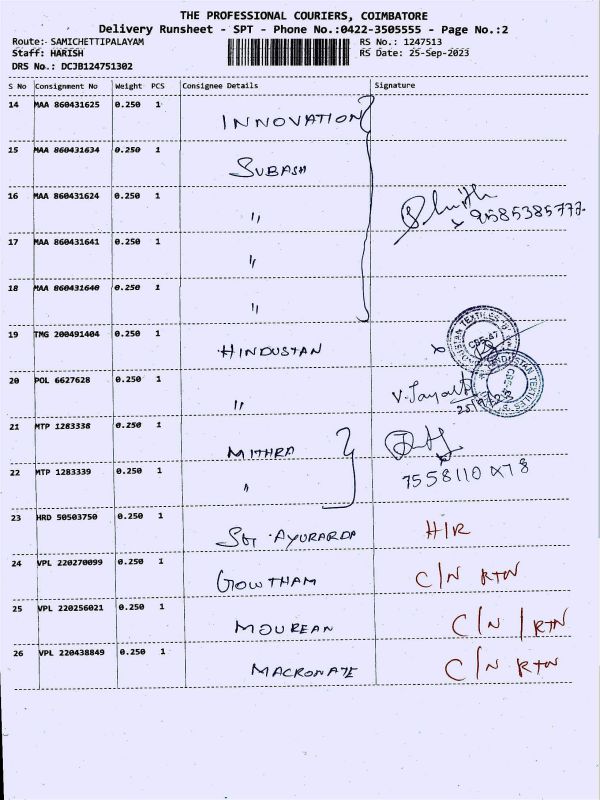 THE PROFESSIONAL COURIERS, COIMBATORE
Delivery Runsheet - SPT - Phone No.:0422-3505555 - Page No.:2
Route:- SAMICHETTIPALAYAM RS No.: 1247513
Staff: HARISH RS Date: 25-Sep-2023
DRS No.: DCJB124751302
S No Consignment No Weight PCS Consignee Details Signature
14 MAA 860431625 0.250 1 INNOVATION
15 MAA 860431634 0.250 1 SUBASH
16 MAA 860431624 0.250 1 "
9585385777
17 MAA 860431641 0.250 1 "
18 MAA 860431640 0.250 1 "
19 TMG 200491404 0.250 1 HINDUSTAN
20 POL 6627628 0.250 1 "
21 MTP 1283338 0.250 1 MITHRA
22 MTP 1283339 0.250 1 "
23 HRD 50503750 0.250 1 H/R
24 VPL 220270099 0.250 1 GOWTHAM C/N RTN
25 VPL 220256021 0.250 1 MOUREAN C/N / RTN
26 VPL 220438849 0.250 1 MACRONATE C/N RTN